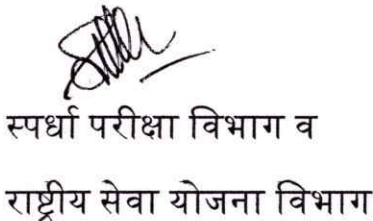 स्पर्धा परीक्षा विभाग व
राष्ट्रीय सेवा योजना विभाग